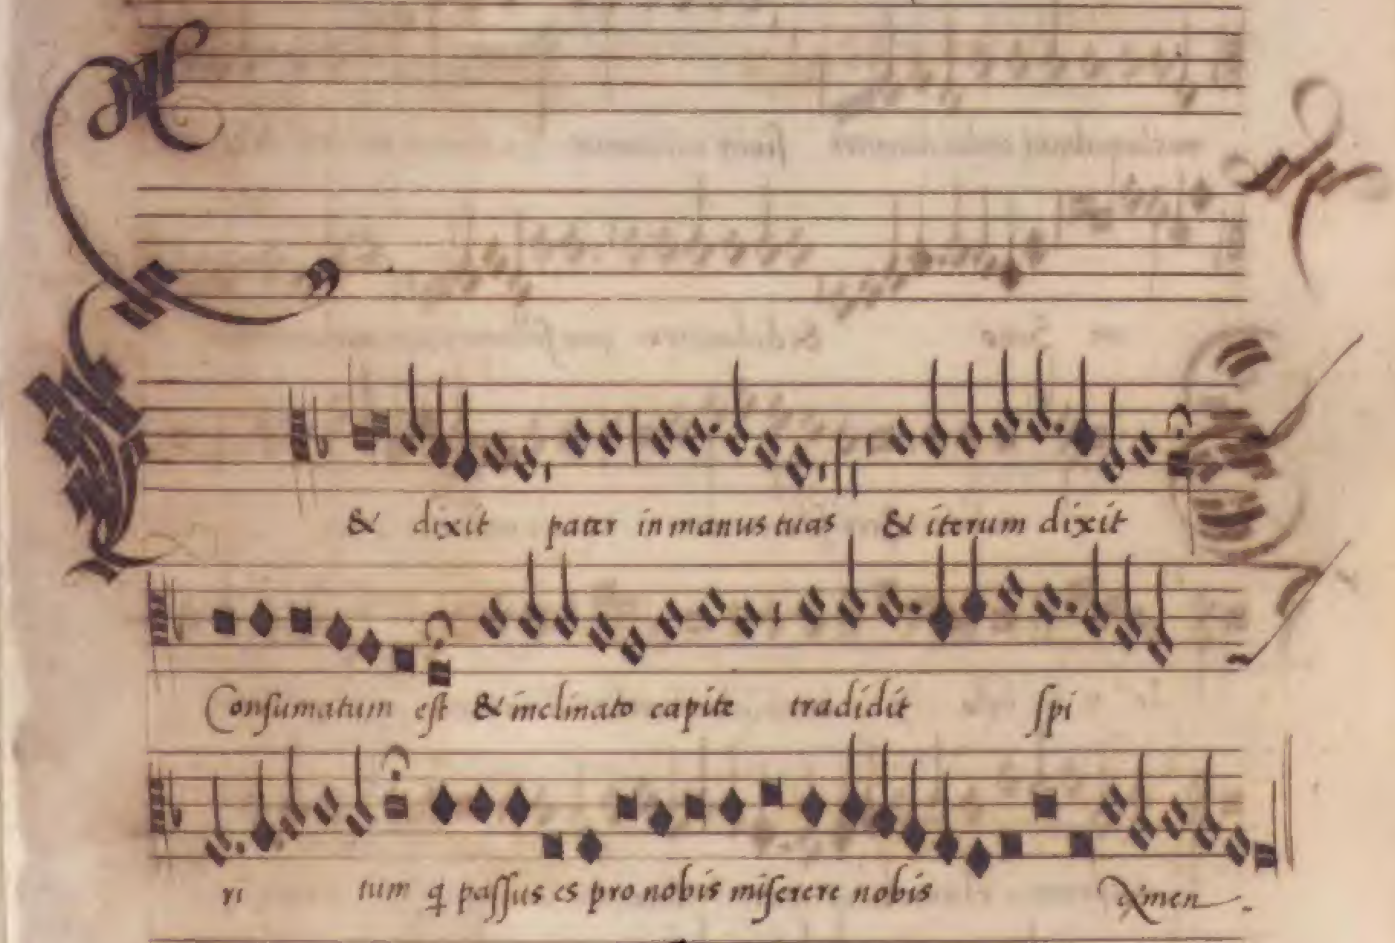 & dixit pater in manus tuas & iterum dixit
Consumatum est & inclinato capite tradidit spi
ri tum q passus es pro nobis miserere nobis Amen